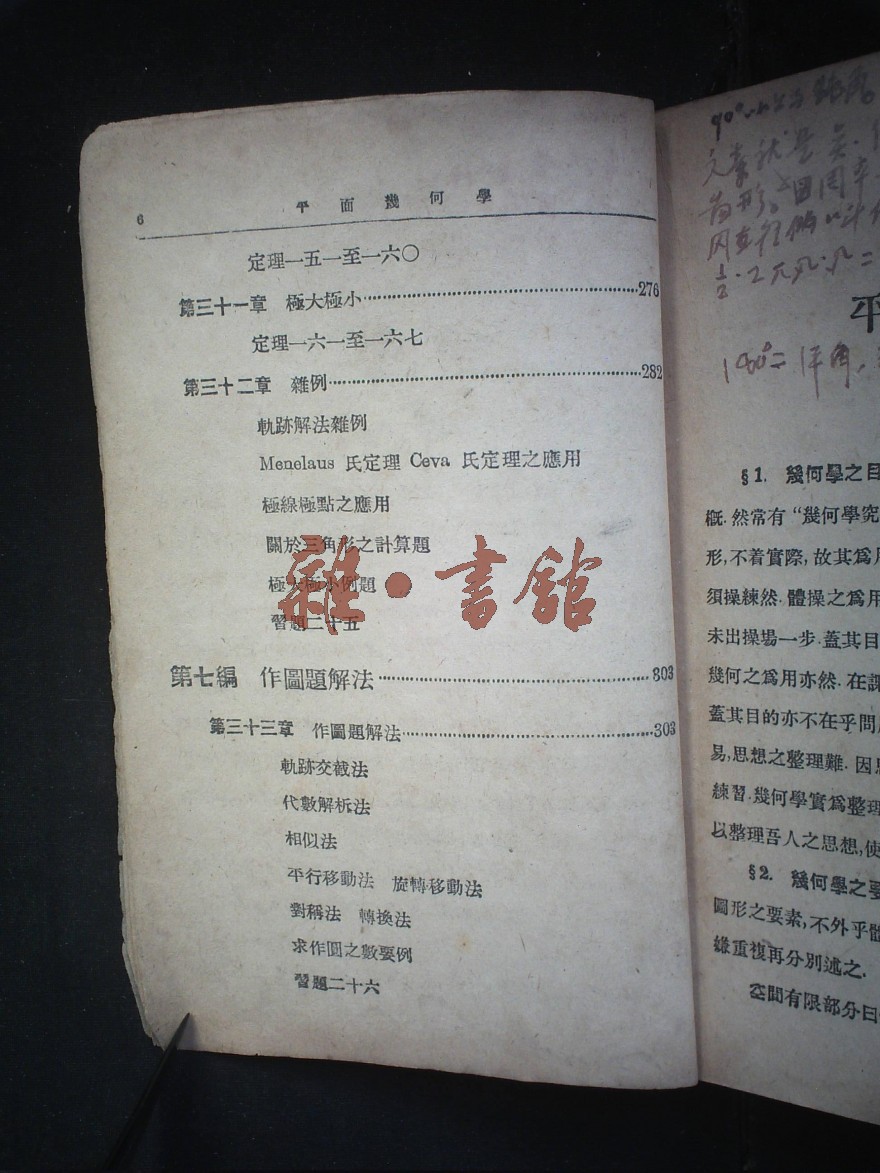 6 平面幾何學
定理一五一至一六〇
第三十一章 極大極小……276
定理一六一至一六七
第三十二章 雜例……282
軌跡解法雜例
Menelaus 氏定理 Ceva 氏定理之應用
極線極點之應用
關於三角形之計算題
極大極小例題
習題二十五
雜·書館
第七編 作圖題解法……303
第三十三章 作圖題解法……303
軌跡交截法
代數解析法
相似法
平行移動法 旋轉移動法
對稱法 轉換法
求作圓之數要例
習題二十六
平
180°=
§1. 幾何學之目
概. 然常有“幾何學究
形,不着實際,故其爲用
須操練然. 體操之爲用
未出操場一步. 蓋其目
幾何之爲用亦然. 在課
蓋其目的亦不在乎問
易,思想之整理難. 因
練習.幾何學實爲整理
以整理吾人之思想,使
§2. 幾何學之要
圖形之要素,不外乎體
緣重複再分別述之.
空間有限部分曰